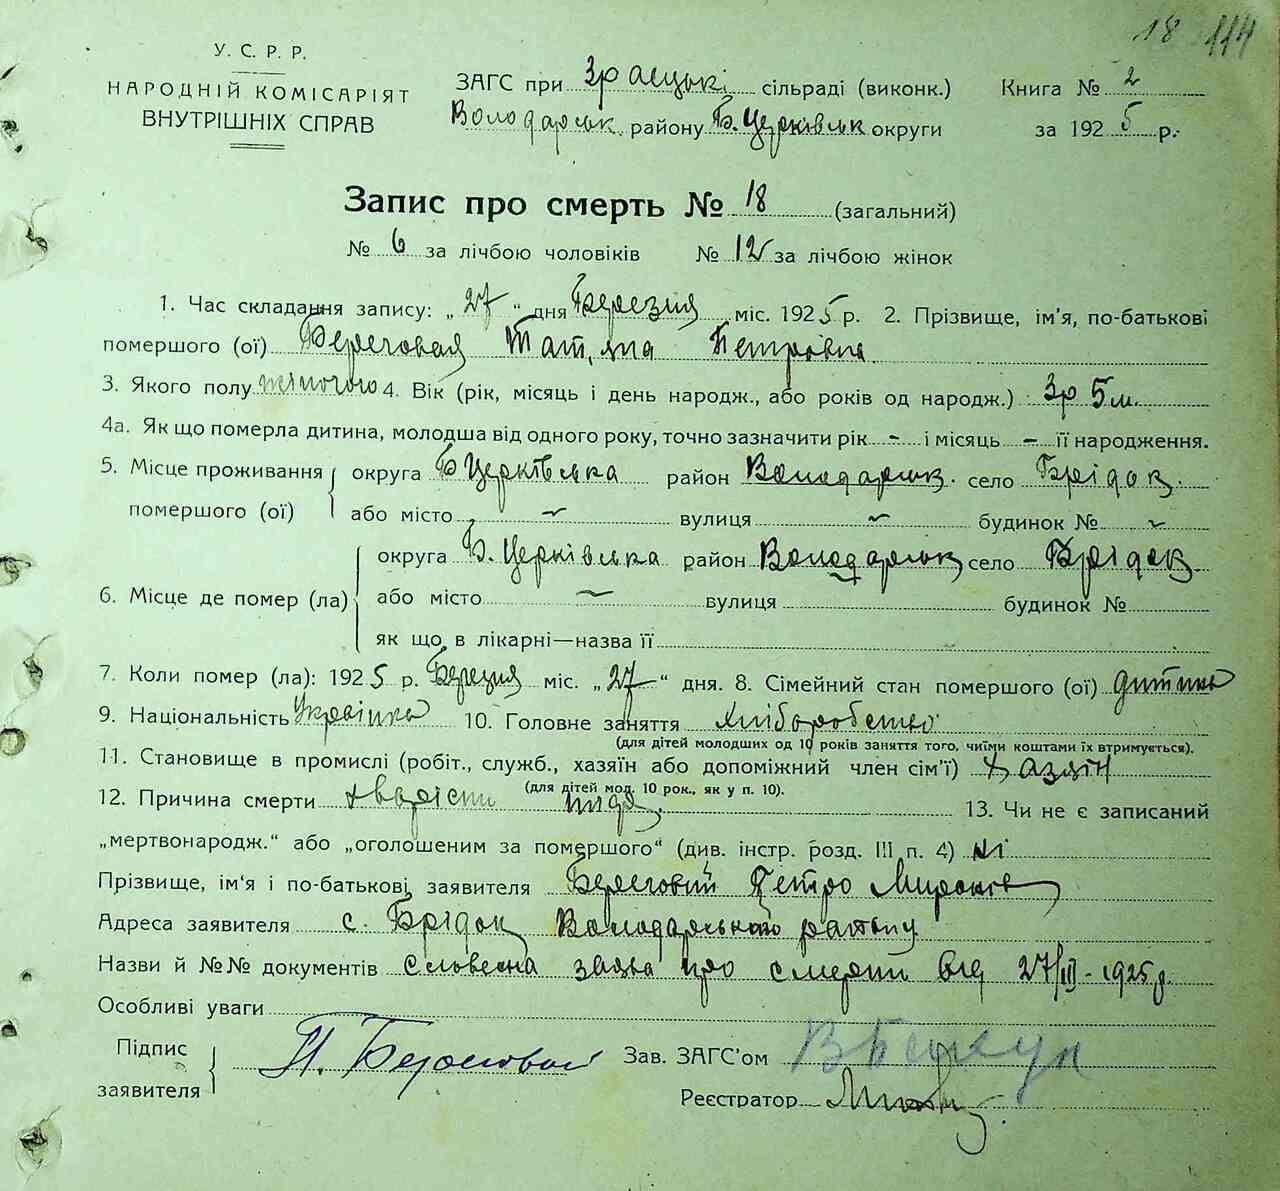 18 114
У. С. Р. Р.
НАРОДНІЙ КОМІСАРІЯТ
ВНУТРІШНІХ СПРАВ
ЗАГС при сільраді (виконк.)
Володарськ. району Б. Церківськ округи
Книга № 2
за 1925 р.
Запис про смерть № 18 (загальний)
№ 6 за лічбою чоловіків № 12 за лічбою жінок
1. Час складання запису: „27“ дня Березня міс. 1925 р. 2. Прізвище, ім'я, по-батькові
помершого (ої) Береговая Тат,яна Петровна
3. Якого полу жіночого 4. Вік (рік, місяць і день народж., або років од народж.) 3р 5м.
4а. Як що померла дитина, молодша від одного року, точно зазначити рік - і місяць - її народження.
5. Місце проживання помершого (ої) округа Б Церківська район Володарськ. село Брідок.
або місто ~ вулиця ~ будинок № ~
6. Місце де помер (ла) округа Б. Церківська район Володарськ село Брідок
або місто ~ вулиця будинок №
як що в лікарні—назва її
7. Коли помер (ла): 1925 р. Березня міс. „27“ дня. 8. Сімейний стан помершого (ої) дитина
9. Національність Українка 10. Головне заняття хліборобство
(для дітей молодших од 10 років заняття того, чиїми коштами їх втримується).
11. Становище в промислі (робіт., служб., хазяїн або допоміжний член сім'ї) хазяїн
(для дітей мол. 10 рок., як у п. 10).
12. Причина смерти 13. Чи не є записаний
„мертвонародж.“ або „оголошеним за помершого“ (див. інстр. розд. III п. 4) ні
Прізвище, ім'я і по-батькові заявителя Береговий Петро Миронов
Адреса заявителя с. Брідок Володарського району
Назви й №№ документів словесна заява про смерть від 27/III-1925р.
Особливі уваги
Підпис заявителя П. Береговой Зав. ЗАГС'ом
Реєстратор